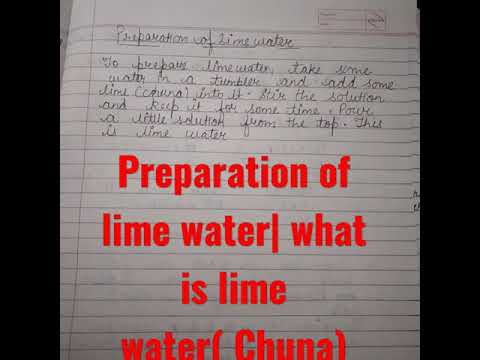 Preparation of Lime water
To prepare limewater, take some
water in a tumbler and add some
lime (chuna) into it. Stir the solution
and keep it for some time. Pour
a little solution from the top. This
is lime water
Preparation of
lime water| what
is lime
water( Chuna)